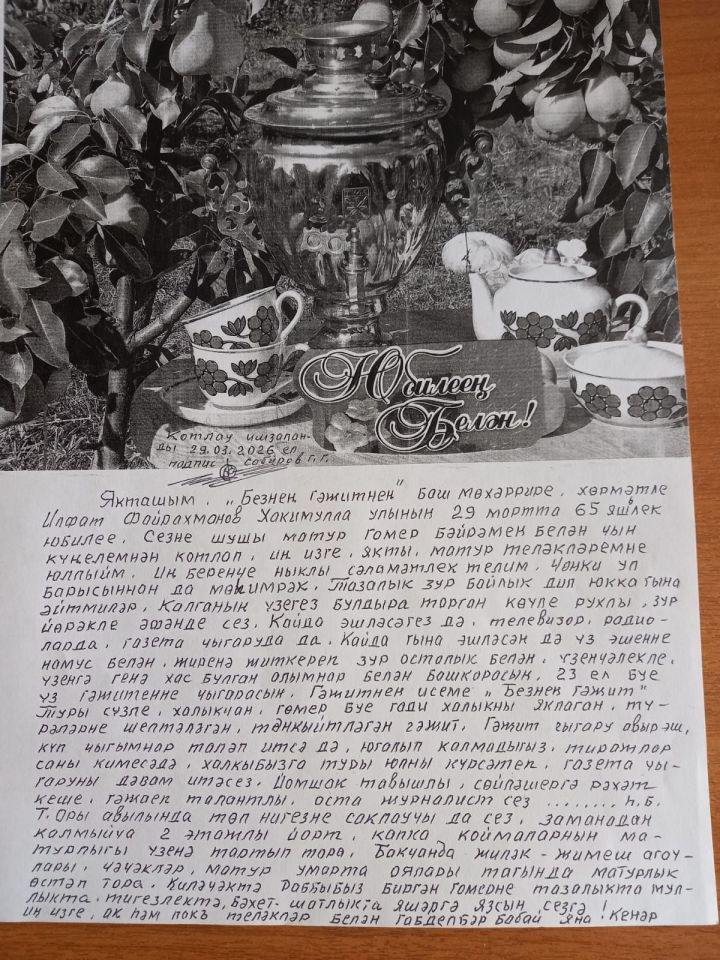 Юбилеең
Белән!
Котлау имзалан-
ды 29.03.2026 ел
подпис Сабиров Г.Г.
Якташым, "Безнең гәҗитнең" баш мөхәррире, хөрмәтле
Илфат Фәйрахманов Хакимулла улының 29 мартта 65 яшьлек
юбилее. Сезне шушы матур гомер бәйрәмең белән чын
күңелемнән котлап, иң изге, якты, матур теләкләремне
юллыйм. Иң беренче ныклы сәламәтлек телим. Чөнки ул
барысыннан да мөһимрәк. Тазалык зур байлык дип юкка гына
әйтмиләр. Калганын үзегез булдыра торган көчле рухлы, зур
йөрәкле әфәнде сез. Кайда эшләсәгез дә, телевизор, радио-
ларда, газета чыгаруда да. Кайда гына эшләсәң дә үз эшенне
намус белән, җиренә җиткереп зур осталык белән, үзенчәлекле,
үзенгә генә хас булган алымнар белән башкарасың. 23 ел буе
үз гәҗитенне чыгарасың. Гәҗитнең исеме "Безнең гәҗит"
Туры сүзле, халыкчан, гомер буе гади халыкны яклаган, тү-
рәләрне шелтәләгән, тәнкыйтләгән гәҗит. Гәҗит чыгару авыр эш,
күп чыгымнар таләп итсә дә, югалып калмадыгыз, тиражлар
саны кимесәдә, халкыбызга туры юлны күрсәтеп, газета чы-
гаруны дәвам итәсез. Йомшак тавышлы, сөйләшергә рәхәт
кеше, гәҗәеп талантлы, оста журналист сез ........, һ.б.
Т. Оры авылында төп нигезне саклаучы да сез, заманадан
калмыйча 2 этажлы йорт, капка коймаларның ма-
турлыгы үзенә тартып тора. Бакчанда җиләк-җимеш агач-
лары, чәчәкләр, матур умарта оялары тагында матурлык
өстәп тора. Киләчәктә Раббыбыз биргән гомерне тазалыкта мул-
лыкта, тигезлектә, бәхет-шатлыкта яшәргә язсын сезгә!
иң изге, ак һәм покъ теләкләр белән Габделбәр бабай Яңа Кенәр